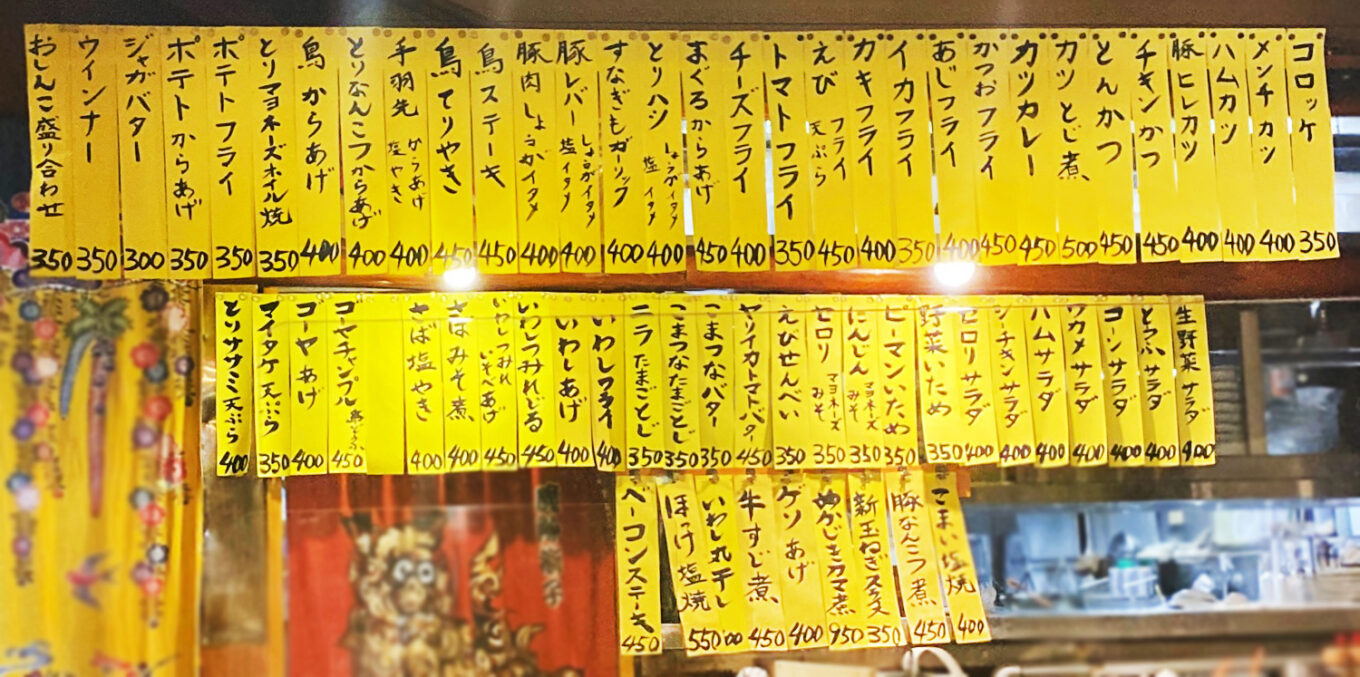 コロッケ 350
メンチカツ 400
ハムカツ 400
豚ヒレカツ 400
チキンかつ 450
とんかつ 450
カツとじ煮 500
カツカレー 450
かつおフライ 450
あじフライ 400
イカフライ 350
カキフライ 400
えび フライ 天ぷら 450
トマトフライ 350
チーズフライ 400
まぐろからあげ 450
とりハツ しょうがイタメ 塩イタメ 400
すなぎもガーリック 400
豚レバー しょうがイタメ 塩イタメ 400
豚肉しょうがイタメ 400
鳥ステーキ 450
鳥てりやき 450
手羽先 からあげ 塩やき 400
とりなんこつからあげ 400
鳥からあげ 400
とりマヨネーズホイル焼 350
ポテトフライ 350
ポテトからあげ 350
ジャガバター 300
ウインナー 350
おしんこ盛り合わせ 350
生野菜サラダ 400
とうふサラダ 400
コーンサラダ 400
ワカメサラダ 400
ハムサラダ 400
シーチキンサラダ 400
セロリサラダ 400
野菜いため 350
ピーマンいため 350
にんじん マヨネーズ みそ 350
セロリ マヨネーズ みそ 350
えびせんべい 350
ヤリイカトマトバター 450
こまつなバター 350
こまつなたまごとじ 350
ニラたまごとじ 350
いわしフライ 400
いわしあげ 400
いわしつみれじる 450
いわしつみれいそべあげ 450
さばみそ煮 400
さば塩やき 400
ゴーヤチャンプル 450
ゴーヤあげ 400
マイタケ天ぷら 350
とりササミ天ぷら 400
こまい塩焼 400
豚なんこつ煮 450
新玉ねぎスライス 350
めかじきカマ煮 950
ゲソあげ 400
牛すじ煮 450
いわし丸干し 00
ほっけ塩焼 550
ベーコンステーキ 450